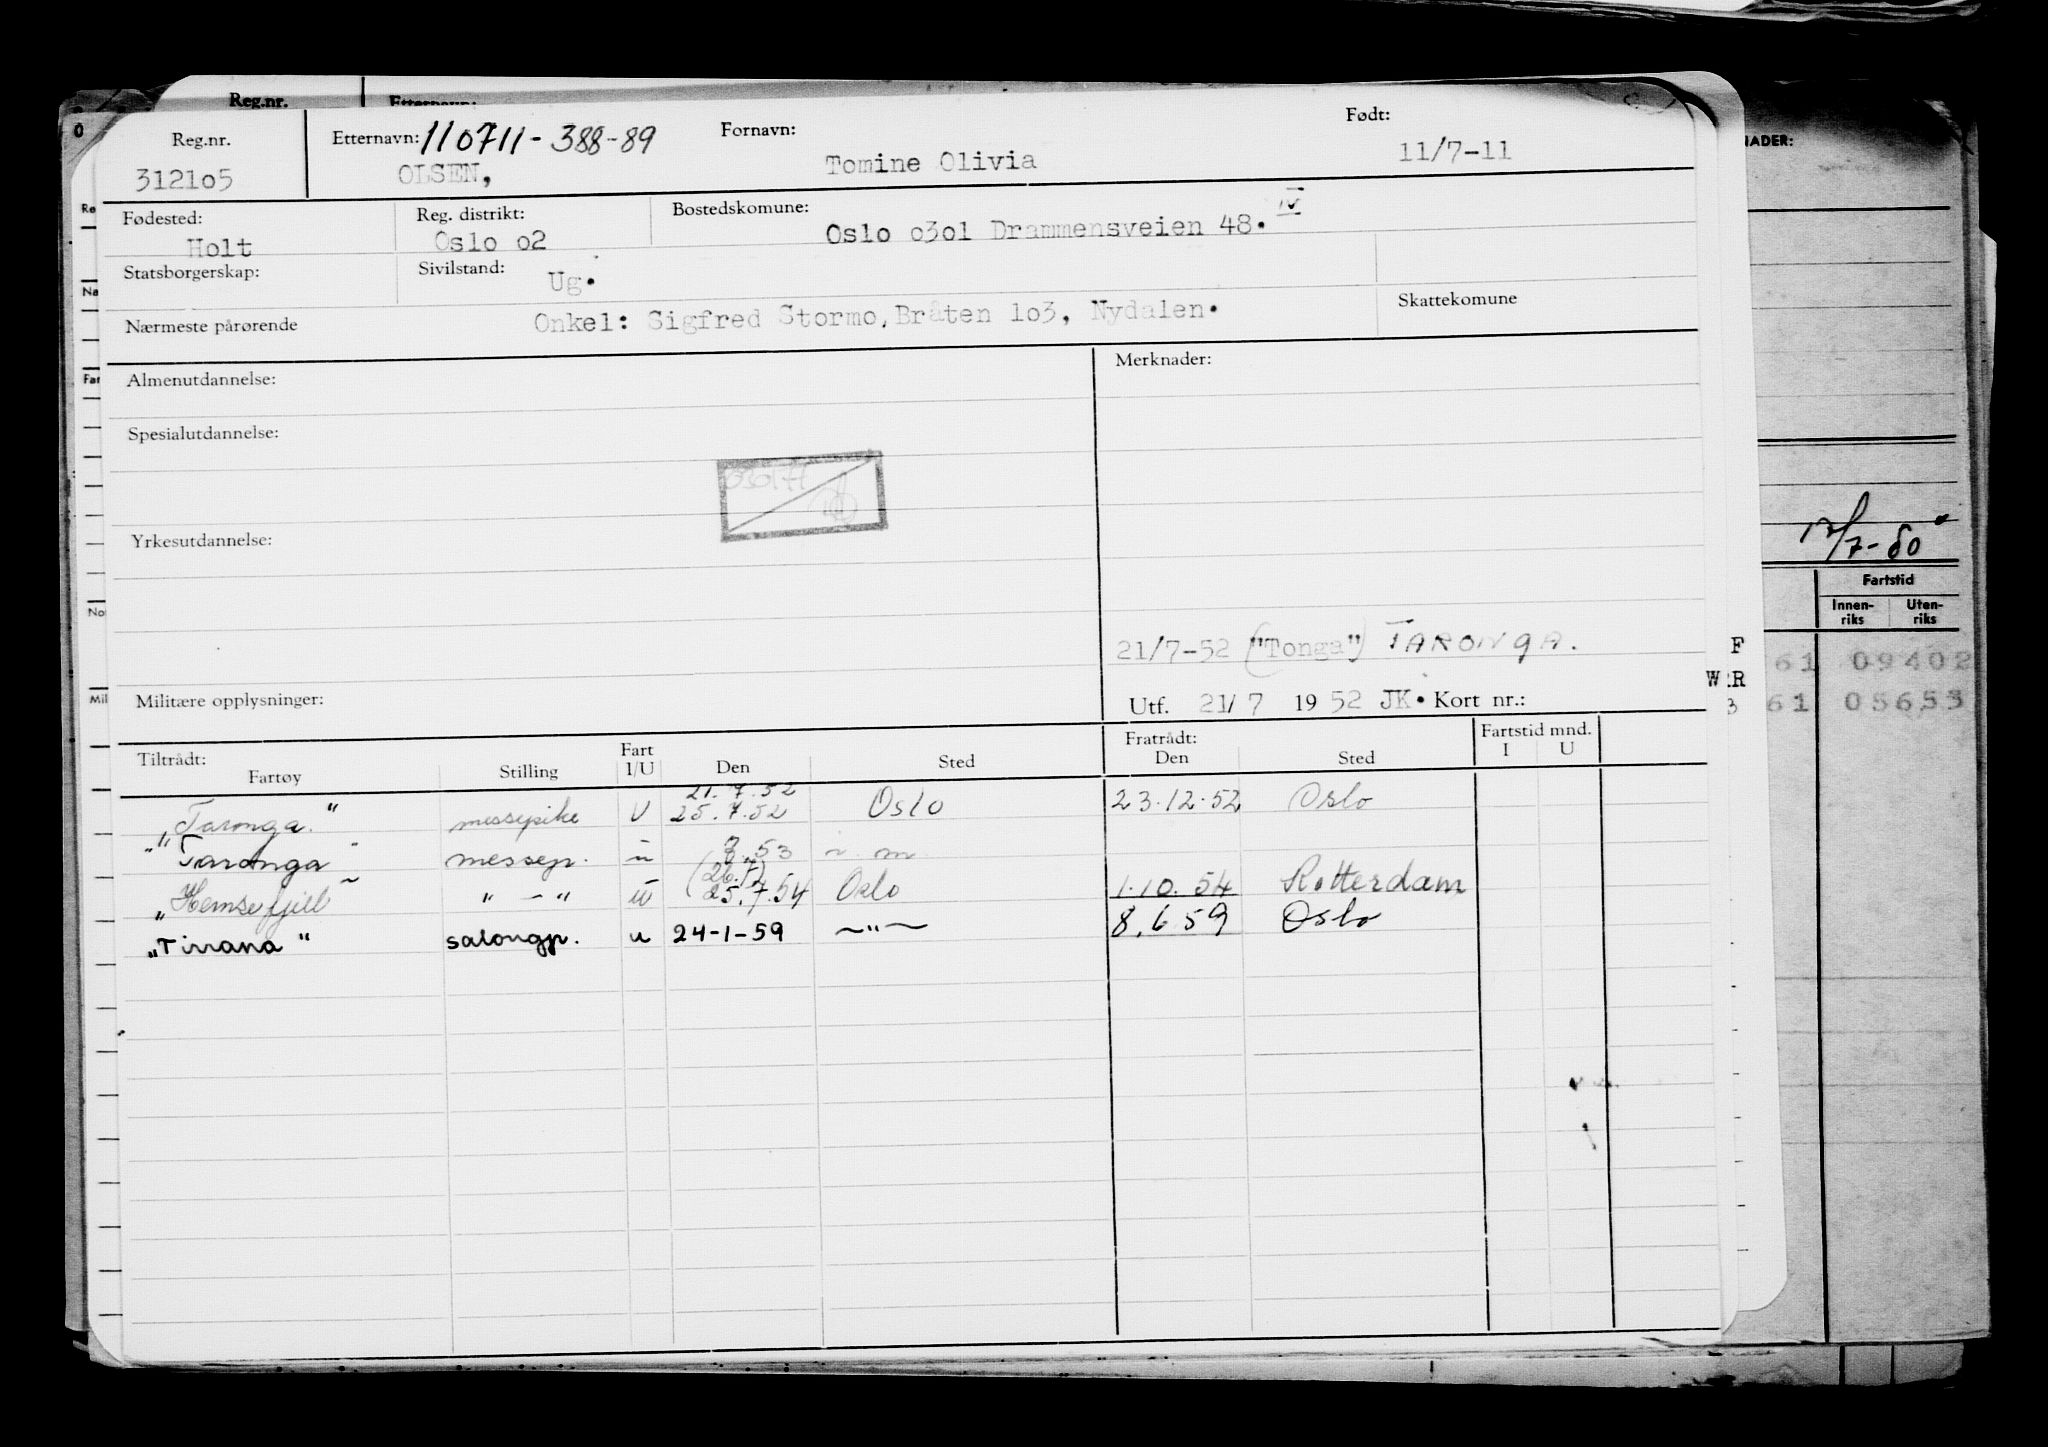 Reg.nr. Etternavn:
Reg.nr. Etternavn: 110711-388-89 Fornavn: Født:
312105 OLSEN, Tomine Olivia 11/7-11
Fødested: Reg. distrikt: Bostedskomune:
Holt Oslo o2 Oslo o3o1 Drammensveien 48. IV
Statsborgerskap: Sivilstand: Ug.
Nærmeste pårørende Onkel: Sigfred Stormo, Bråten 1o3, Nydalen. Skattekomune
Almenutdannelse: Merknader:
Spesialutdannelse:
Yrkesutdannelse:
21/7-52 ("Tonga") TARONGA.
Militære opplysninger: Utf. 21/ 7 19 52 JK. Kort nr.:
Tiltrådt: Fart Fratrådt: Fartstid mnd.
Fartøy Stilling I/U Den Sted Den Sted I U
21.7.52
"Taronga." messepike U 25.7.52 Oslo 23.12.52 Oslo
"Taronga" messep. u 53
(26.7)
"Hemsefjell" " - " u 25.7.54 Oslo 1.10.54 Rotterdam
"Tirrana" salongp. u 24-1-59 -"- 8.6.59 Oslo
NADER:
12/7-60
Fartstid
Innen-riks Uten-riks
F
61 09402
W R
3 61 05653